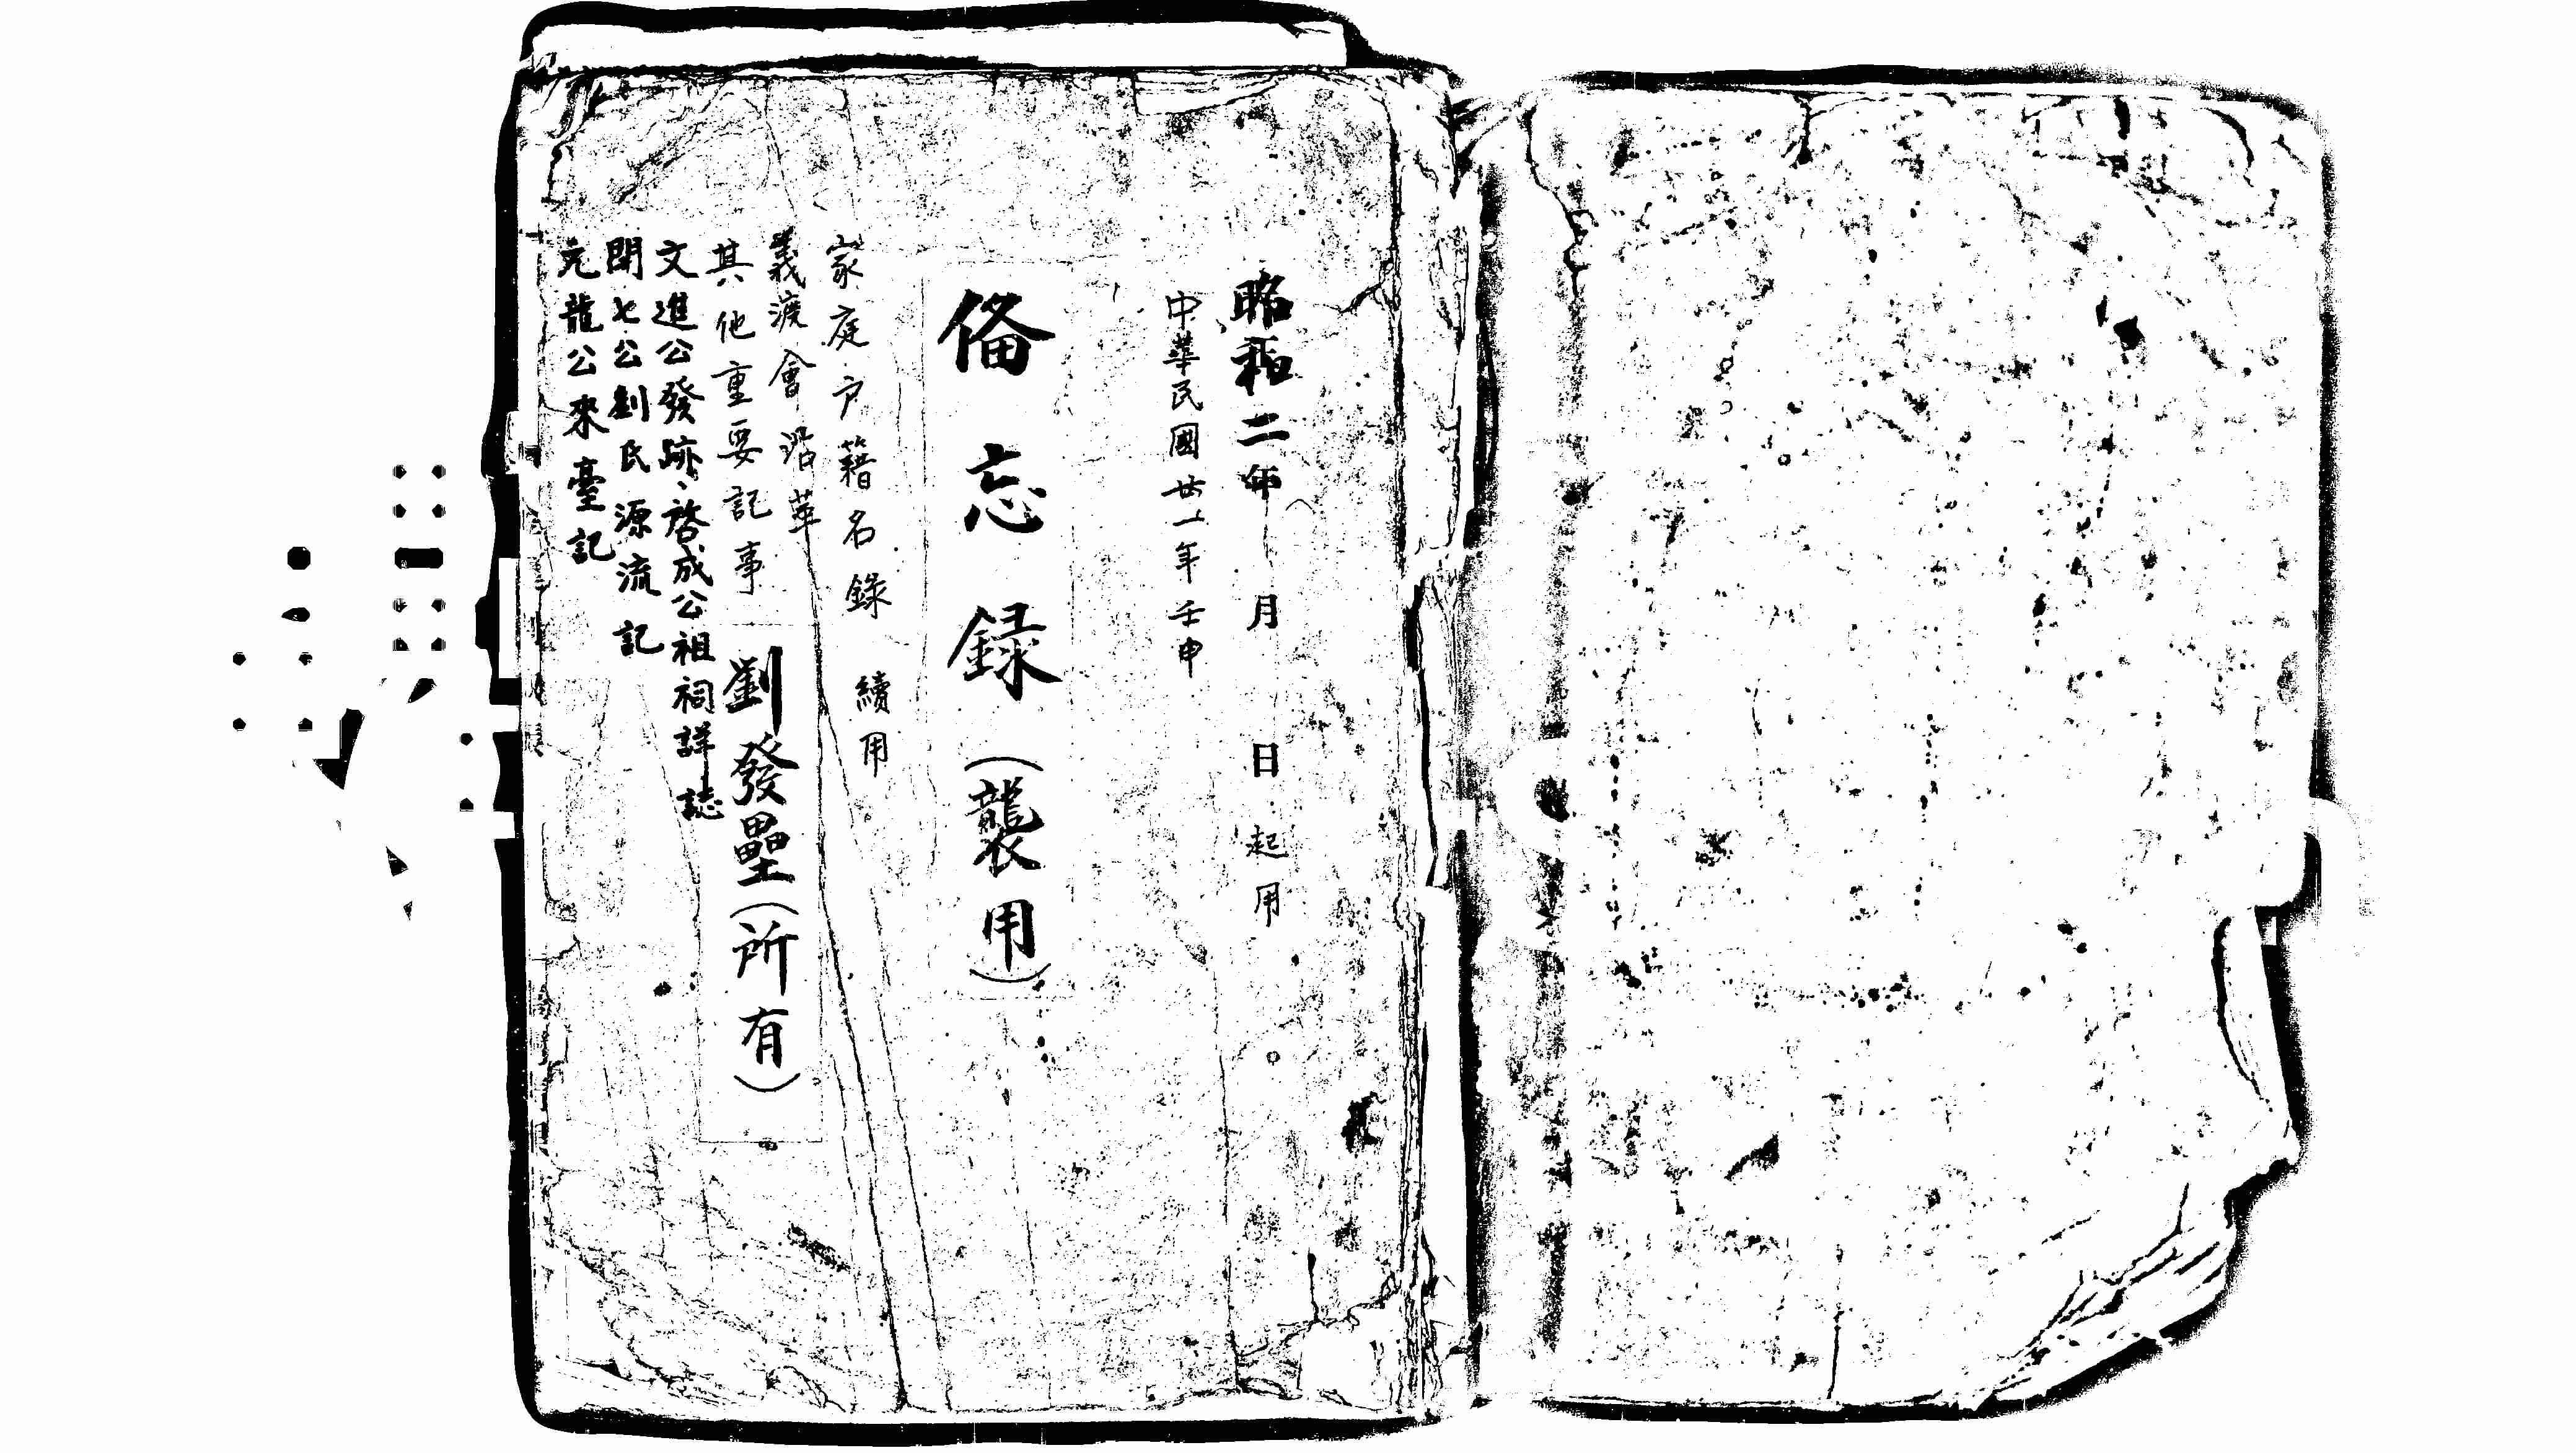 昭和二年 月 日起用
中華民國廿一年壬申
俻忘録(襲用)
家庭戸籍名錄 續用
義渡會沿革
其他重要記事
劉發壘(所有)
文進公發跡、啓成公祖祠詳誌
開七公劉氏源流記
元龍公來臺記